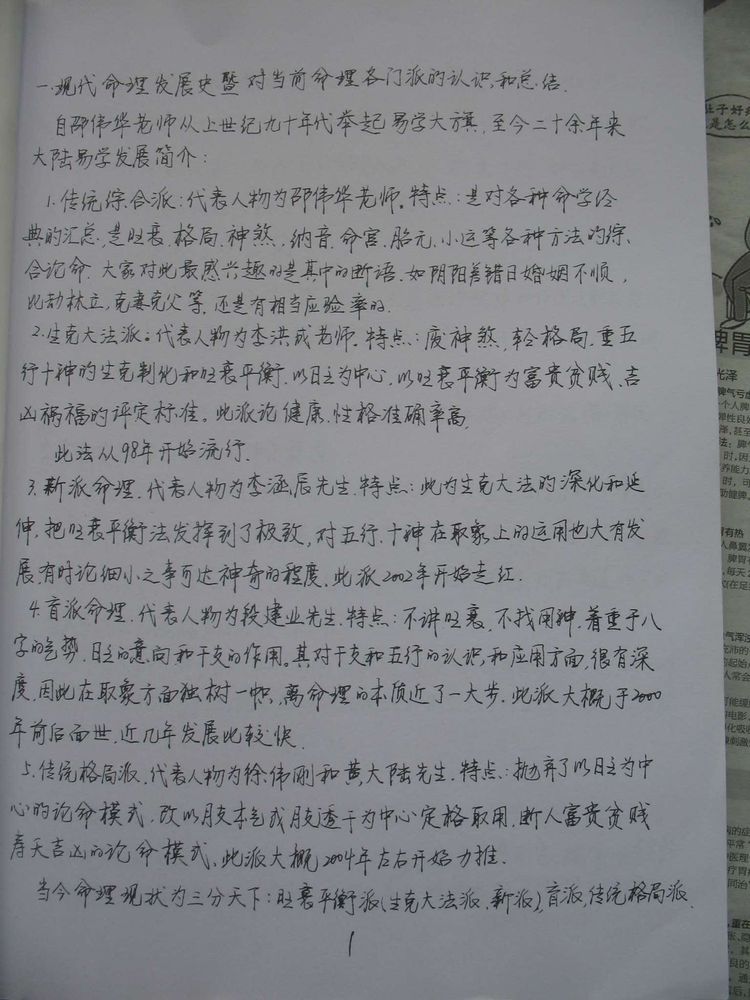 一.现代命理发展史暨对当前命理各门派的认识和总结.
自邵伟华老师从上世纪九十年代举起易学大旗,至今二十余年来
大陆易学发展简介:
1.传统综合派:代表人物为邵伟华老师。特点:是对各种命学经
典的汇总,是旺衰.格局.神煞,纳音.命宫.胎元.小运等各种方法的综
合论命.大家对此最感兴趣的是其中的断语.如阴阳差错日婚姻不顺,
比劫林立,克妻克父等.还是有相当应验率的.
2.生克大法派。代表人物为李洪成老师.特点:废神煞,轻格局.重五
行十神的生克制化和旺衰平衡.以日主为中心,以旺衰平衡为富贵贫贱、吉
凶祸福的评定标准。此派论健康.性格准确率高.
此法从98年开始流行.
3.新派命理.代表人物为李涵辰先生.特点:此为生克大法的深化和延
伸.把旺衰平衡法发挥到了极致,对五行.十神在取象上的运用也大有发
展,有时论细小之事可达神奇的程度.此派2002年开始走红.
4.盲派命理.代表人物为段建业先生.特点:不讲旺衰,不找用神.着重于八
字的气势.日主的意向和干支的作用。其对干支和五行的认识,和应用方面,很有深
度,因此在取象方面独树一帜,离命理的本质近了一大步.此派大概于2000
年前后面世,近几年发展比较快.
5.传统格局派.代表人物为徐伟刚和黄大陆先生.特点:抛弃了以日主为中
心的论命模式.改以月支本气或月支透干为中心定格取用.断人富贵贫贱
寿夭吉凶的论命模式.此派大概2004年左右开始力推.
当今命理现状为三分天下:旺衰平衡派(生克大法派.新派),盲派,传统格局派.
1
脾胃
光泽
有热